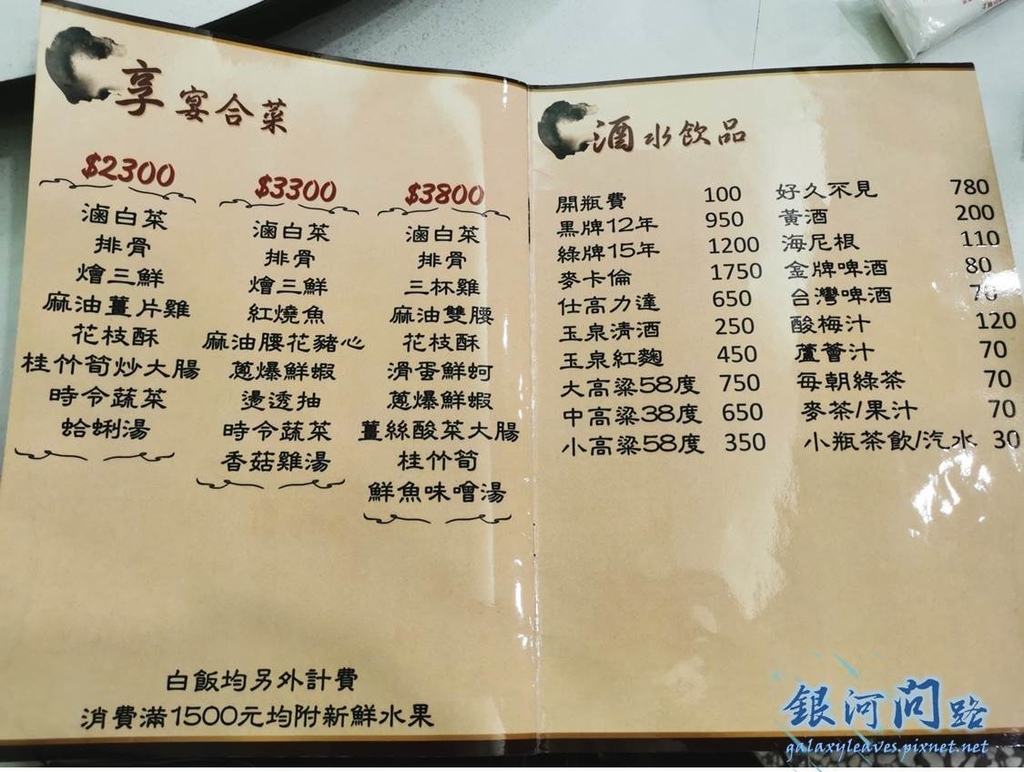 享宴合菜
$2300
滷白菜
排骨
燴三鮮
麻油薑片雞
花枝酥
桂竹筍炒大腸
時令蔬菜
蛤蜊湯
$3300
滷白菜
排骨
燴三鮮
紅燒魚
麻油腰花豬心
蔥爆鮮蝦
燙透抽
時令蔬菜
香菇雞湯
$3800
滷白菜
排骨
三杯雞
麻油雙腰
花枝酥
滑蛋鮮蚵
蔥爆鮮蝦
薑絲酸菜大腸
桂竹筍
鮮魚味噌湯
白飯均另外計費
消費滿1500元均附新鮮水果
酒水飲品
開瓶費 100
黑牌12年 950
綠牌15年 1200
麥卡倫 1750
仕高力達 650
玉泉清酒 250
玉泉紅麴 450
大高粱58度 750
中高粱38度 650
小高粱58度 350
好久不見 780
黃酒 200
海尼根 110
金牌啤酒 80
台灣啤酒 70
酸梅汁 120
蘆薈汁 70
每朝綠茶 70
麥茶/果汁 70
小瓶茶飲/汽水 30
銀河問路
galaxyleaves.pixnet.net